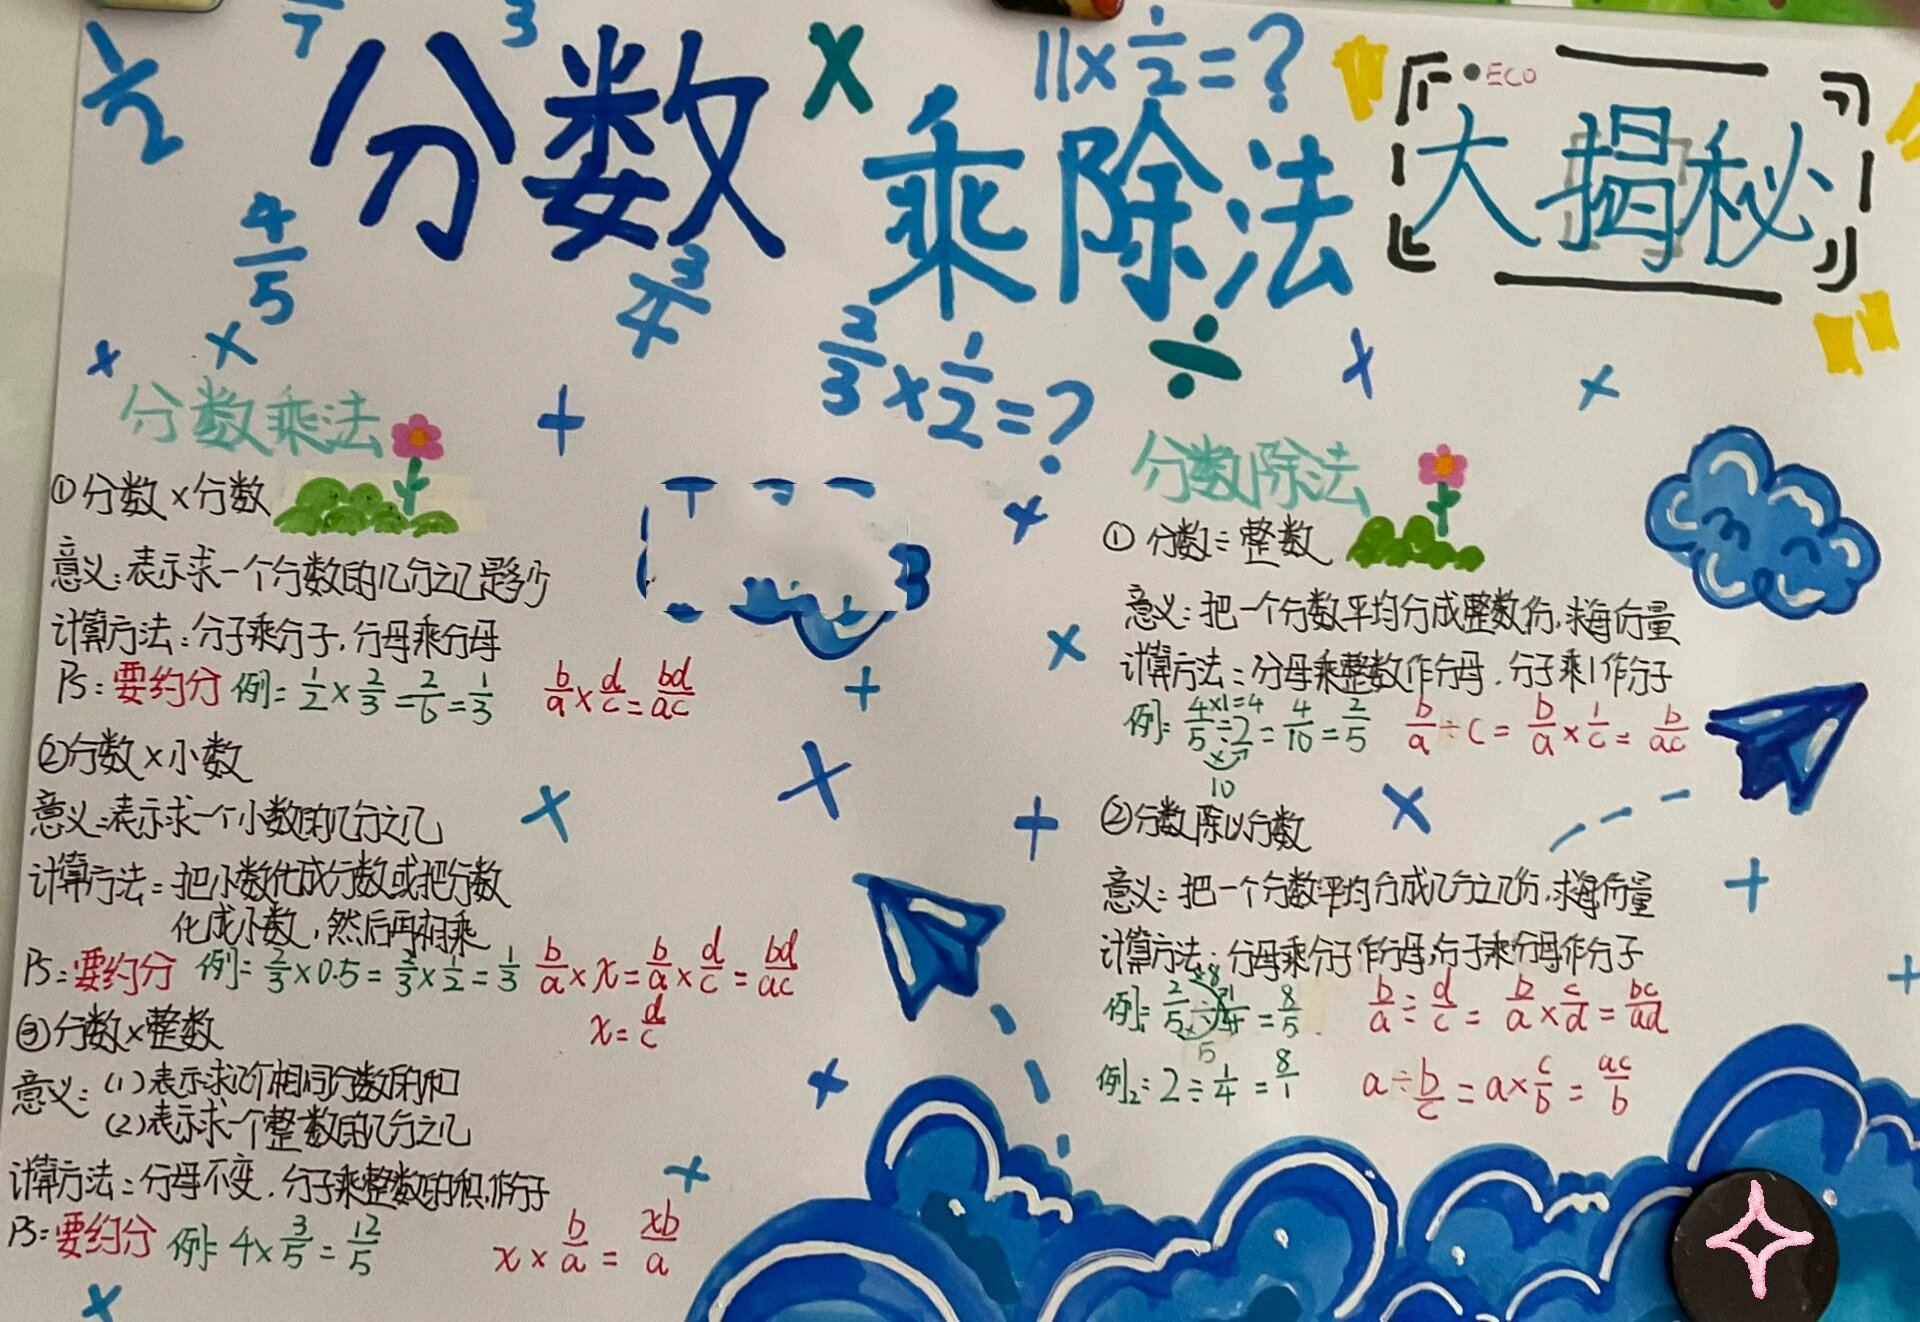 分数
乘除法
大揭秘
ECO
1/2
/7
3
×
11×1/2=?
4/5
3/4
2/3×1/2=?
÷
分数乘法
①分数×分数
意义:表示求一个分数的几分之几是多少
计算方法:分子乘分子,分母乘分母
PS:要约分 例:1/2×2/3=2/6=1/3 b/a×d/c=bd/ac
②分数×小数
意义:表示求一个小数的几分之几
计算方法:把小数化成分数或把分数
化成小数,然后再相乘
PS:要约分 例:2/3×0.5=2/3×1/2=1/3 b/a×x=b/a×d/c=bd/ac
x=d/c
③分数×整数
意义:(1)表示求几个相同分数的和
(2)表示求一个整数的几分之几
计算方法:分母不变,分子乘整数的积,作分子
PS:要约分 例:4×3/5=12/5 x×b/a=xb/a
分数除法
①分数÷整数
意义:把一个分数平均分成整数份,求每份量
计算方法:分母乘整数作分母,分子乘1作分子
4×1=4
例:4/5÷2=4/10=2/5 b/a÷c=b/a×1/c=b/ac
×
10
②分数除以分数
意义:把一个分数平均分成几分之几份,求每份量
计算方法:分母乘分子作分母,分子乘分母作分子
例1:2/5÷1/4=8/5 b/a÷d/c=b/a×c/d=bc/ad
5
例2:2÷1/4=8/1 a÷b/c=a×c/b=ac/b